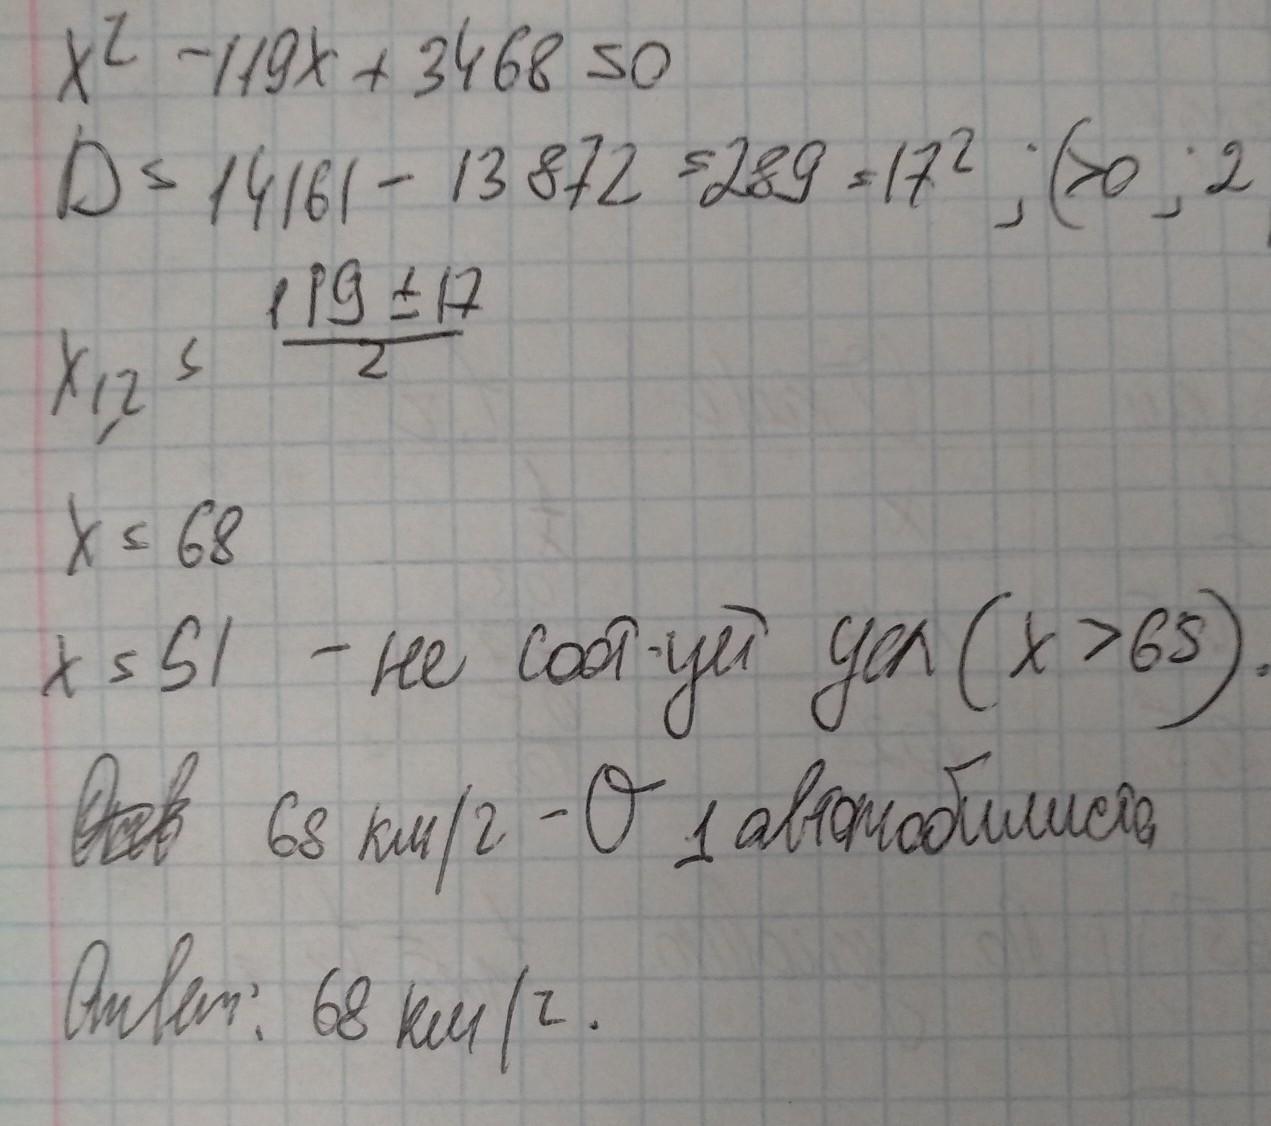 x² - 119x + 3468 = 0
D = 14161 - 13872 = 289 = 17² ; (>0 ; 2
x₁,₂ = (119 ± 17)/2
x = 68
x = 51 - не соот-ует усл (x > 65).
68 км/ч - V 1 автомобилиста
Ответ: 68 км/ч.